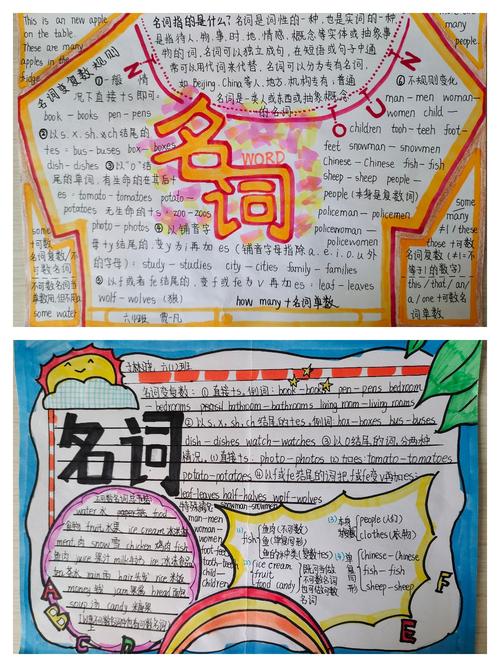 This is an new apple
on the table.
These are many
apples in the
fridge.
名词指的是什么?名词是词性的一种,也是实词的一种
是指待人、物、事、时、地、情感、概念等实体或抽象事
物的词,名词可以独立成句,在短语或句子中通
常可以用代词来代替,名词可以分为专有名词,
如 Beijing, China等人、地方、机构专有,普通
名词是一类人或东西或抽象概念
的名词
NOUN
名词
WORD
名词变复数规则
①一般情
况下直接+s 即可
book - books pen - pens
②以s.x.sh.ch结尾的
+es=bus-buses box-boxes
dish-dishes ③以"o"结
尾的单词,有生命的在其后+
es:tomato-tomatoes potato-
potatoes 无生命的+s=zoo-zoos
photo-photos ④以辅音字
母+y结尾的,变y为i再加es(辅音字母指除a.e.i.o.u外
的字母):study-studies city-cities family-families
⑤以f或者fe结尾的,变f或fe为v再加es:leaf-leaves
wolf-wolves(狼)
⑥不规则变化
man-men woman-
women child-
children tooth-teeth foot-
feet snowman-snowmen
Chinese-Chinese fish-fish
sheep-sheep people-
people(本身是复数词)
policeman-policemen
policewoman-
policewomen
how many+名词复数
some
+可数
名词复数/不
可数名词
不可数名词当
单数用,但不用a
some water
some
many
≠1/these
those+可数
名词复数(≠1=不
等于1的数字)
this/that/an/
a/one+可数名
词单数
名词
名词变复数:①直接+s,例词:book-books pen-pens bedroom
-bedrooms bathroom-bathrooms living room-living rooms
②以s、x、sh、ch结尾的+es,例词:box-boxes bus-buses
dish-dishes watch-watches ③以O结尾的词,分两种
情况,(1)直接+s-photo-photos (2)+oes:tomato-tomatoes
potato-potatoes ④以f或fe结尾的词把f或fe变v再加es:
leaf-leaves half-halves wolf-wolves
snowman-snowmen
man-men
woman-
women
foot-feet
tooth-
teeth
child-
children
policeman-
policemen
policewoman-
policewomen
不可数名词总结
water 水 paper 纸 food
食物 fruit 水果 ice cream 冰淇淋
meat 肉 snow 雪 chicken 鸡肉 fish
鱼肉 juice 果汁 milk 牛奶 ice 冰
rain 雨 hair 头发 rice 米饭
money 钱 jam 果酱 bread 面包
soup 汤 candy 糖果
fish
鱼肉(不可数)
鱼(单复同形)
鱼的种类(复数+es)
ice cream
fruit
food candy
既可当做
不可数名词
也可做可数
名词
(3)本身
people(人们)
clothes(衣物)
(4)单复同形
Chinese-Chinese
fish-fish
sheep-sheep
A
B
C
D
E
F